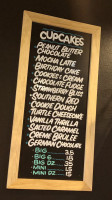 CUPCAKES
PEANUT BUTTER
CHOCOLATE
MOCHA LATTE
BIRTHDAY CAKE
COOKIES & CREAM
CHOCOLATE FUDGE
STRAWBERRY BLISS
SOUTHERN RED
COOKIE DOUGH
TURTLE CHEESECAKE
VANILLA THRILLA
SALTED CARAMEL
CREME BRULEE
GERMAN CHOCOLATE
BIG
BIG 6
BIG DZ
MINI
MINI DZ